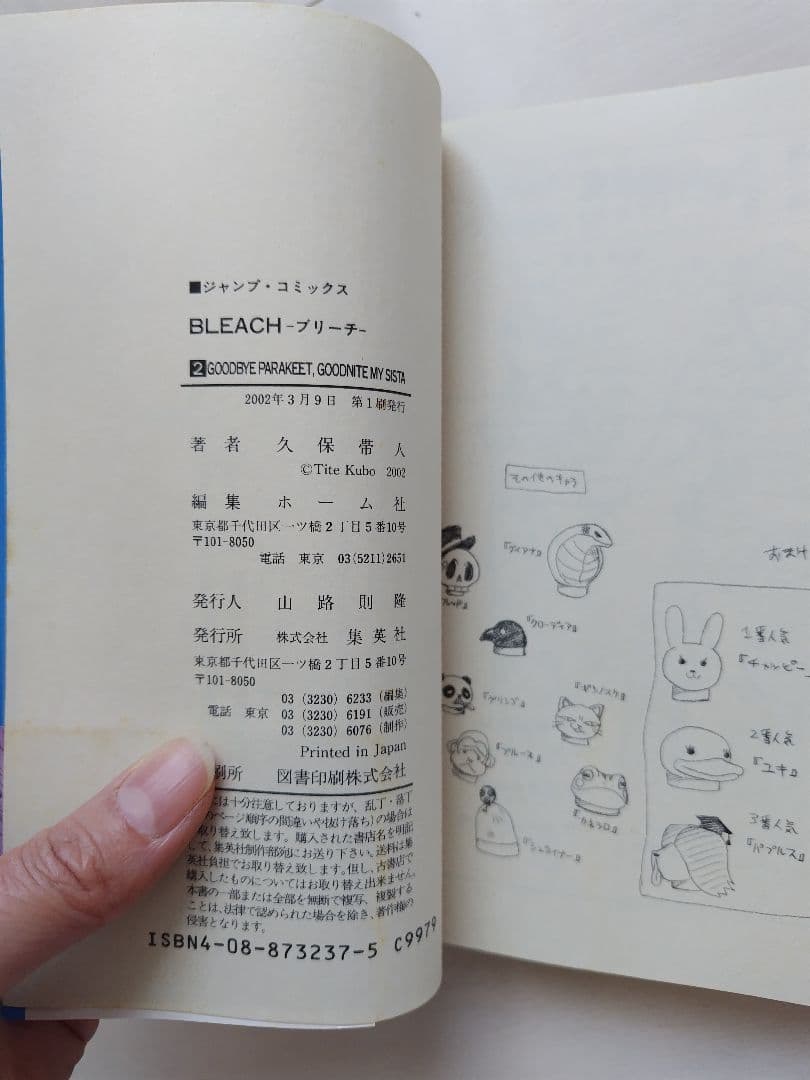 ■ジャンプ・コミックス
BLEACH-ブリーチ-
2 GOODBYE PARAKEET, GOODNITE MY SISTA
2002年3月9日 第1刷発行
著者 久保帯人
©Tite Kubo 2002
編集 ホーム社
東京都千代田区一ツ橋2丁目5番10号
〒101-8050
電話 東京 03(5211)2651
発行人 山路則隆
発行所 株式会社 集英社
東京都千代田区一ツ橋2丁目5番10号
〒101-8050
03(3230)6233(編集)
電話 東京 03(3230)6191(販売)
03(3230)6076(制作)
Printed in Japan
刷所 図書印刷株式会社
は十分注意しておりますが、乱丁・落丁
のページ順序の間違いや抜け落ち)の場合は
取り替え致します。購入された書店名を明記
して、集英社制作部宛にお送り下さい。送料は集
英社負担でお取り替え致します。但し、古書店で
購入したものについてはお取り替え出来ません。
本書の一部または全部を無断で複写、複製する
ことは、法律で認められた場合を除き、著作権の
侵害となります。
ISBN4-08-873237-5 C9979
その他のキャラ
『ダイアナ』
『クローディア』
『プリング』
『ギンノスケ』
『ブルース』
『カネシロ』
『シュタイナー』
おまけ
1番人気
『チャッピー』
2番人気
『ユキ』
3番人気
『パプルス』